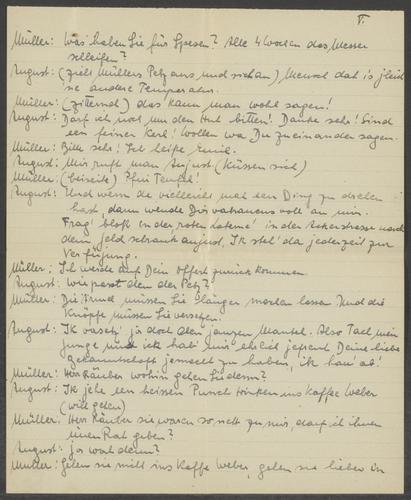 V.
Müller: Was haben Sie für Spesen? Alle 4 Wochen das Messer
schleifen?
August: (zieht Müllers Pelz aus und sich an) Mensch dat is jleich
ne andere Temperatur.
Müller: (zitternd) das kann man wohl sagen!
August: Darf ich noch um den Hut bitten! Danke sehr! Sind
een feiner Kerl! Wollen wa Du zueinander sagen.
Müller: Bitte sehr! Ich heiße Emil.
August: Mir ruft man August (küssen sich)
Müller: (beiseite) Pfui Teufel!
August: Und wenn de vielleicht mal een Ding zu drehen
hast, dann wende Dir vatrauensvoll an mir.
Frag' bloß in der roten Laterne in der Ackerstrasse nach
dem Jeldschrankaujust. Ik steh' da jederzeit zur
Verfügung.
Müller: Ich werde auf Dein Offert zurückkommen.
August: Wie passt denn der Pelz?
Müller: Die Ärmel müssen Sie länger machen lassen und die
Knöpfe müssen Sie versetzen.
August: Ik vasetz' ja doch den janzen Mantel. Also Tach mein
Junge und ick hab' mir ehrlich jefreut Deine liebe
Bekanntschaft jemacht zu haben, ik hau' ab!
Müller: Herr Räuber wohin gehen Sie denn?
August: Ik jehe een heissen Punsch trinken ins Kaffe Weber
(will gehen)
Müller: Herr Räuber sie waren so nett zu mir, darf ich ihnen
einen Rat geben?
August: ja wat denn?
Müller: Gehen sie nicht ins Kaffe Weber, gehen sie lieber in